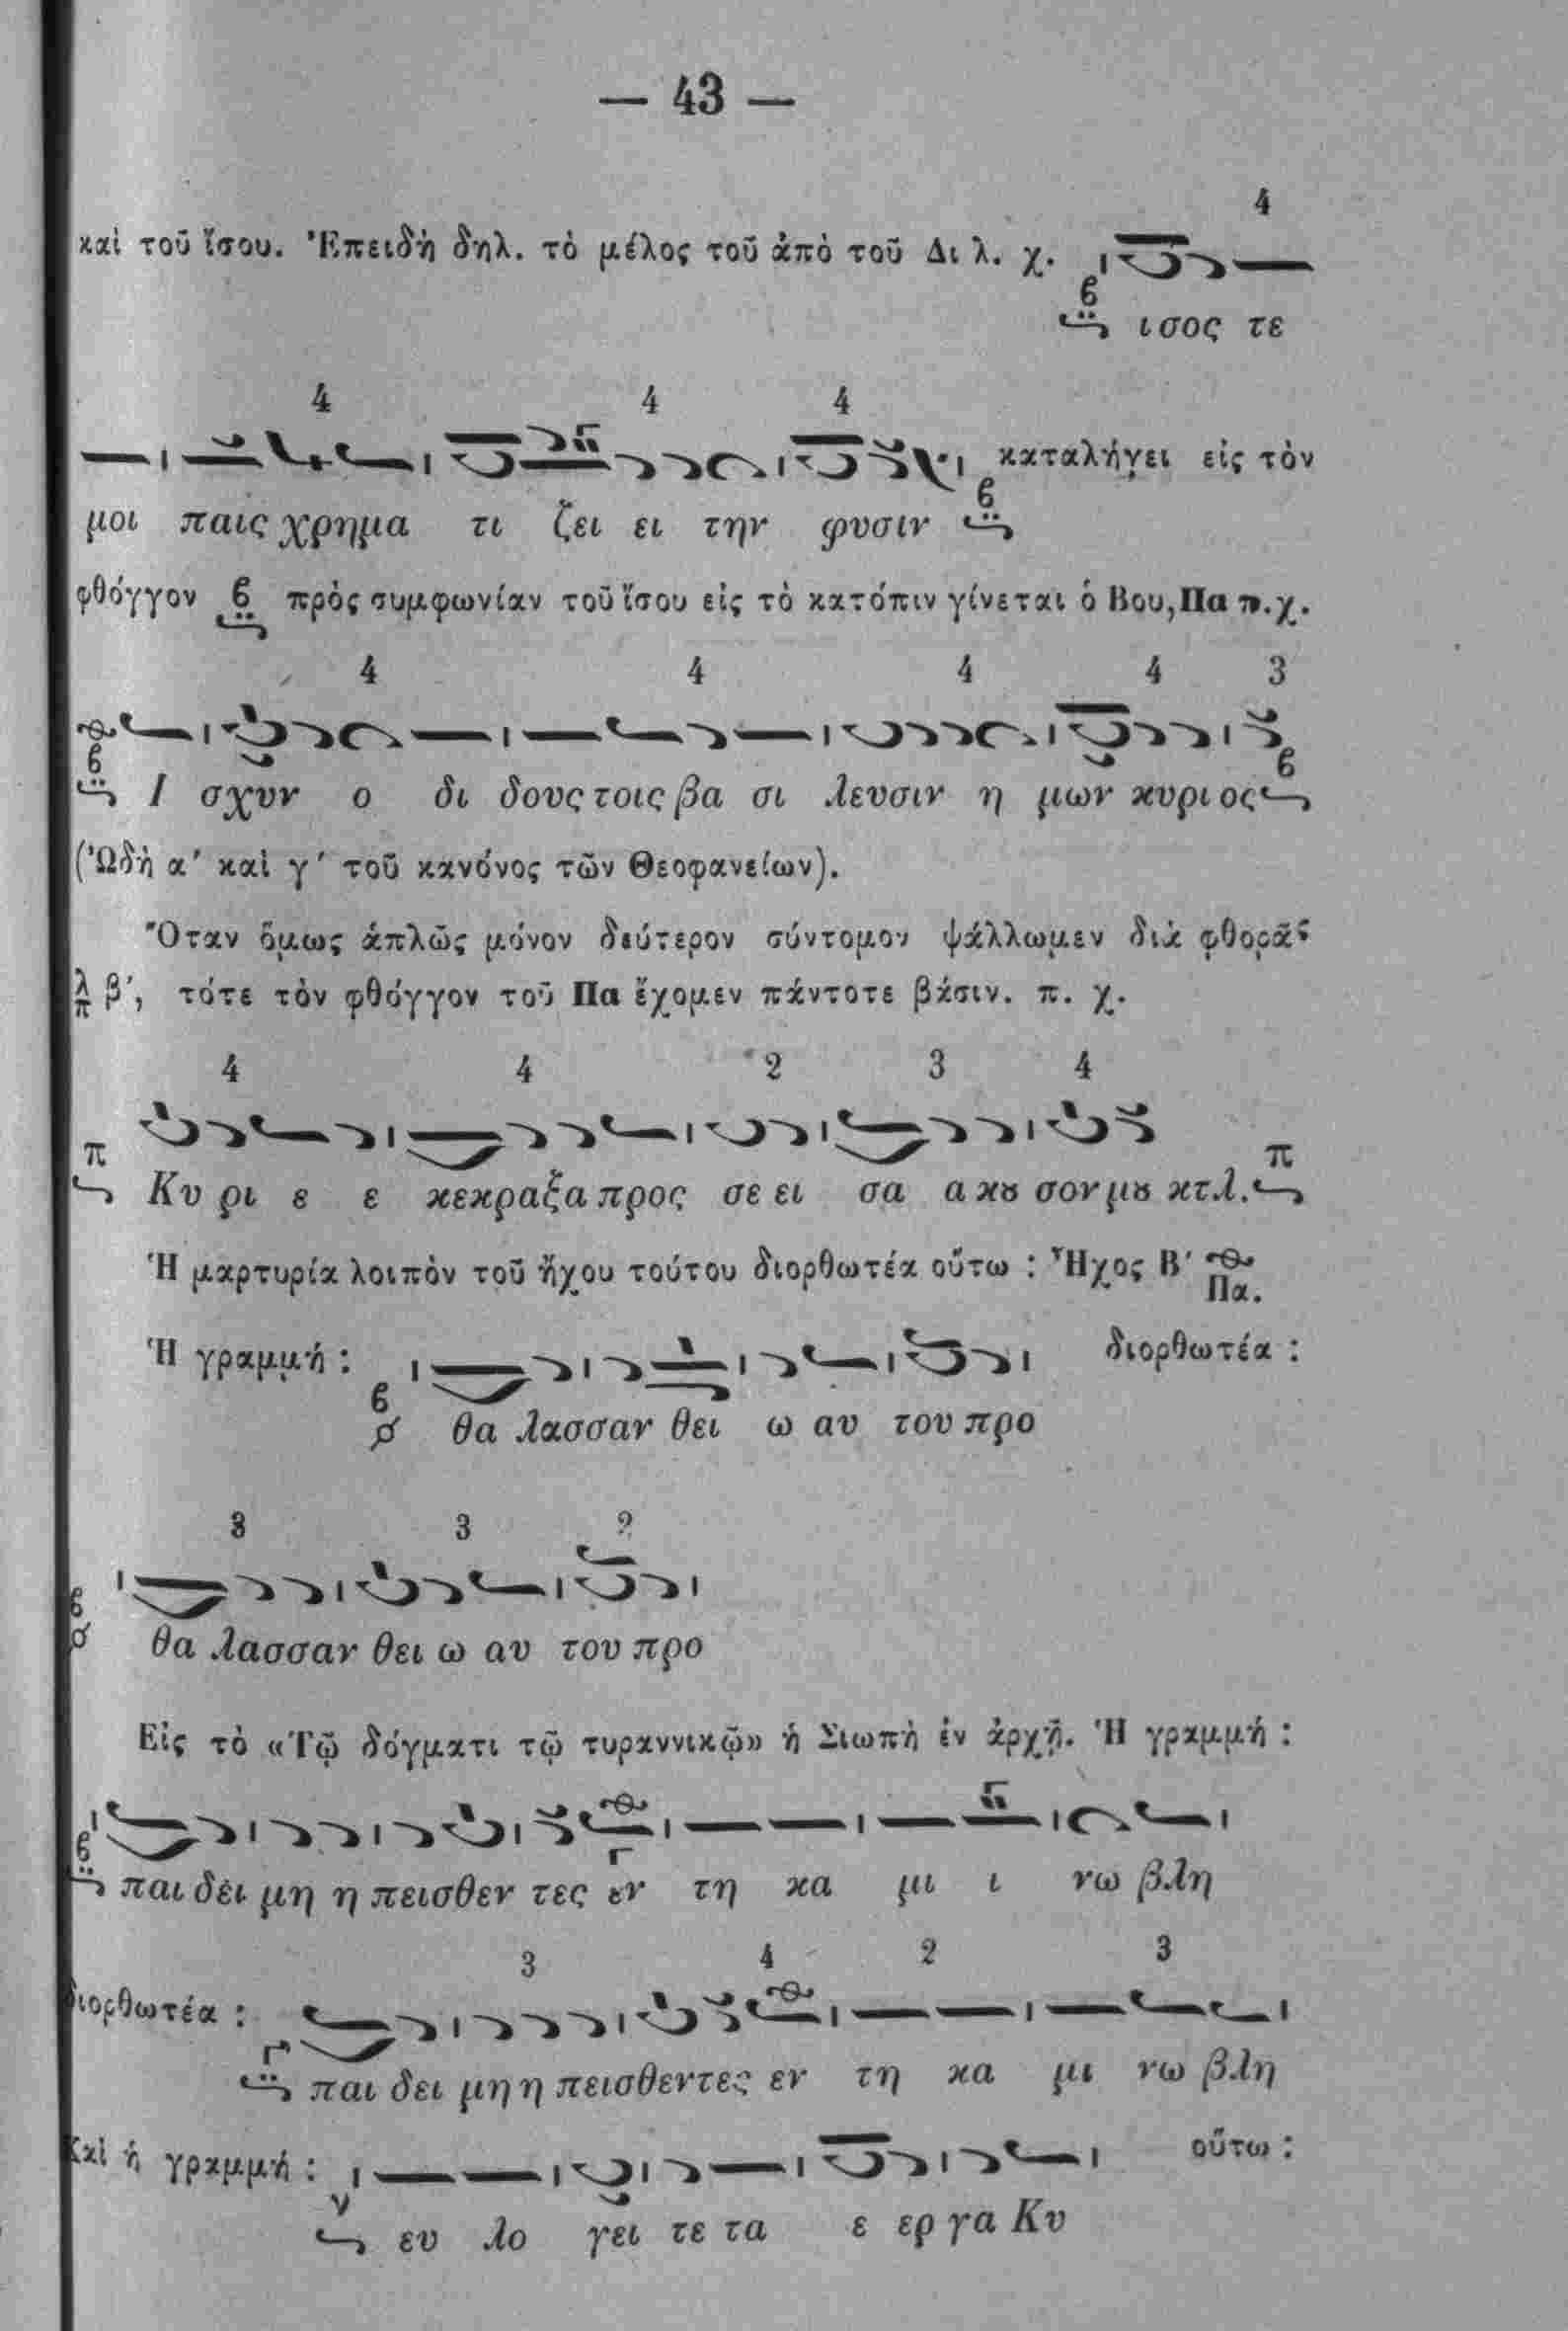 — 43 —
4
καὶ τοῦ ἴσου. Ἐπειδὴ δηλ. τὸ μέλος τοῦ ἀπὸ τοῦ Δι λ. χ.
ισος τε
4 4 4
καταλήγει εἰς τὸν
μοι παις χρημα τι ζει ει την φυσιν
φθόγγον πρὸς συμφωνίαν τοῦ ἴσου εἰς τὸ κατόπιν γίνεται ὁ Βου, Πα π.χ.
4 4 4 4 3
Ι σχυν ο δι δους τοις βα σι λευσιν η μων κυρι ος
(Ὠδὴ α΄ καὶ γ΄ τοῦ κανόνος τῶν Θεοφανείων).
Ὅταν ὅμως ἁπλῶς μόνον δεύτερον σύντομον ψάλλωμεν διὰ φθορᾶς
λ/π β΄, τότε τὸν φθόγγον τοῦ Πα ἔχομεν πάντοτε βάσιν. π. χ.
4 4 2 3 4
π π
Κυ ρι ε ε κεκραξα προς σε ει σα α κȣ σον μȣ κτλ.
Ἡ μαρτυρία λοιπὸν τοῦ ἤχου τούτου διορθωτέα οὕτω : Ἦχος Β΄
Πα.
Ἡ γραμμή : διορθωτέα :
θα λασσαν θει ω αυ του προ
3 3 2
θα λασσαν θει ω αυ του προ
Εἰς τὸ «Τῷ δόγματι τῷ τυραννικῷ» ἡ Σιωπὴ ἐν ἀρχῇ. Ἡ γραμμή :
παι δει μη η πεισθεν τες εν τη κα μι ι νω βλη
3 4 2 3
διορθωτέα :
παι δει μη η πεισθεντες εν τη κα μι νω βλη
Καὶ ἡ γραμμή : οὕτω :
ν
ευ λο γει τε τα ε ερ γα Κυ